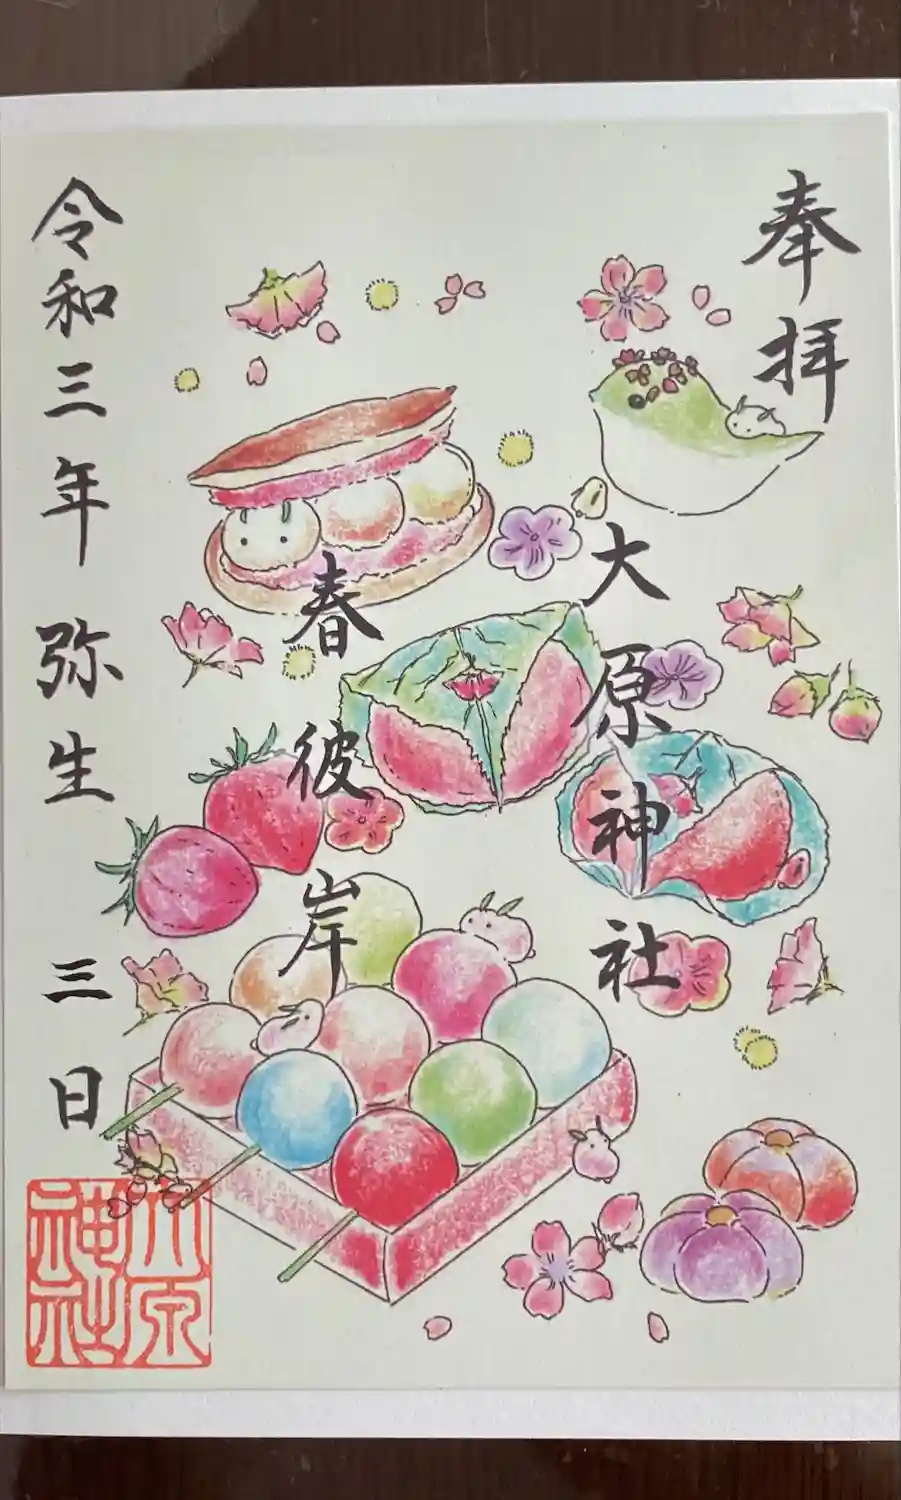 奉拝
大原神社
春彼岸
令和三年弥生三日
大原神社